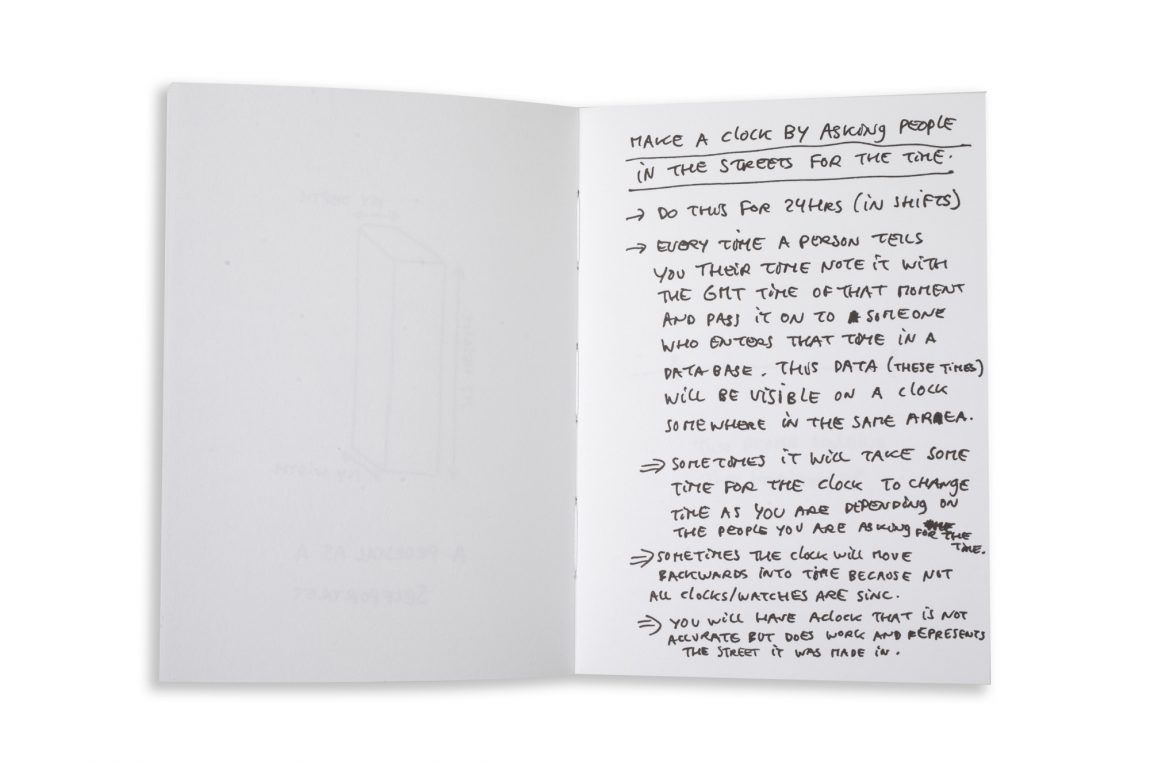 MAKE A CLOCK BY ASKING PEOPLE
IN THE STREETS FOR THE TIME.
→ DO THIS FOR 24HRS (IN SHIFTS)
→ EVERY TIME A PERSON TELLS
YOU THEIR TIME NOTE IT WITH
THE GMT TIME OF THAT MOMENT
AND PASS IT ON TO SOMEONE
WHO ENTERS THAT TIME IN A
DATA-BASE. THIS DATA (THESE TIMES)
WILL BE VISIBLE ON A CLOCK
SOMEWHERE IN THE SAME AREA.
⇒ SOMETIMES IT WILL TAKE SOME
TIME FOR THE CLOCK TO CHANGE
TIME AS YOU ARE DEPENDING ON
THE PEOPLE YOU ARE ASKING FOR THE
TIME.
⇒ SOMETIMES THE CLOCK WILL MOVE
BACKWARDS INTO TIME BECAUSE NOT
ALL CLOCKS/WATCHES ARE SINC.
⇒ YOU WILL HAVE A CLOCK THAT IS NOT
ACCURATE BUT DOES WORK AND REPRESENTS
THE STREET IT WAS MADE IN.
MY DEPTH
MY WIDTH
A PEDESTAL AS A
SELFPORTRET